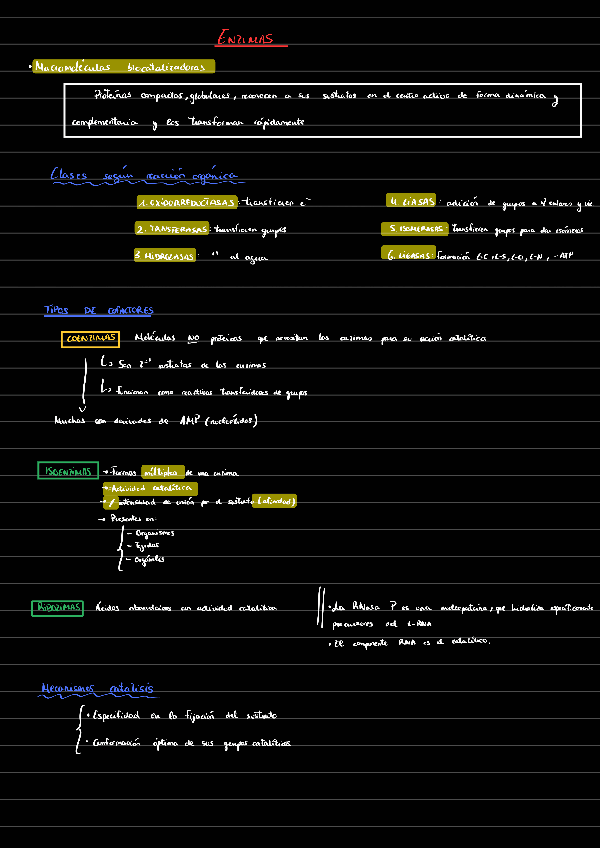 ENZIMAS
• Macromoléculas biocatalizadoras
Proteínas compactas, globulares, reconocen a sus sustratos en el centro activo de forma dinámica y
complementaria y los transforman rápidamente
Clases según reacción orgánica
1. OXIDORREDUCTASAS: transfieren e⁻
2. TANSFERASAS: transfieren grupos
3. HIDROLASAS: " al agua
4. LIASAS: adición de grupos a enlaces y
5. ISOMERASAS: transfieren grupos para dar isómeros
6. LIGASAS: Formación C-C, C-S, C-O, C-N, ATP
TIPOS DE COFACTORES
COENZIMAS Moléculas NO proteicas que necesitan las enzimas para su acción catalítica
↳ Son sustratos de las enzimas
↳ Funcionan como reactivos transferidores de grupos
Muchas son derivados de AMP (nucleótidos)
ISOENZIMAS → Formas múltiples de una enzima
→ Actividad catalítica
→ ≠ intensidad de unión por el sustrato (afinidad)
→ Presentes en:
- Organismos
- Tejidos
- Orgánulos
RIBOZIMAS Ácidos ribonucleicos con actividad catalítica
• La RNasa P es una que hidroliza específicamente
precursores del t-RNA
• El componente RNA es el catalítico.
Mecanismos catálisis
• Especifidad en la fijación del sustrato
• Conformación óptima de sus grupos catalíticos